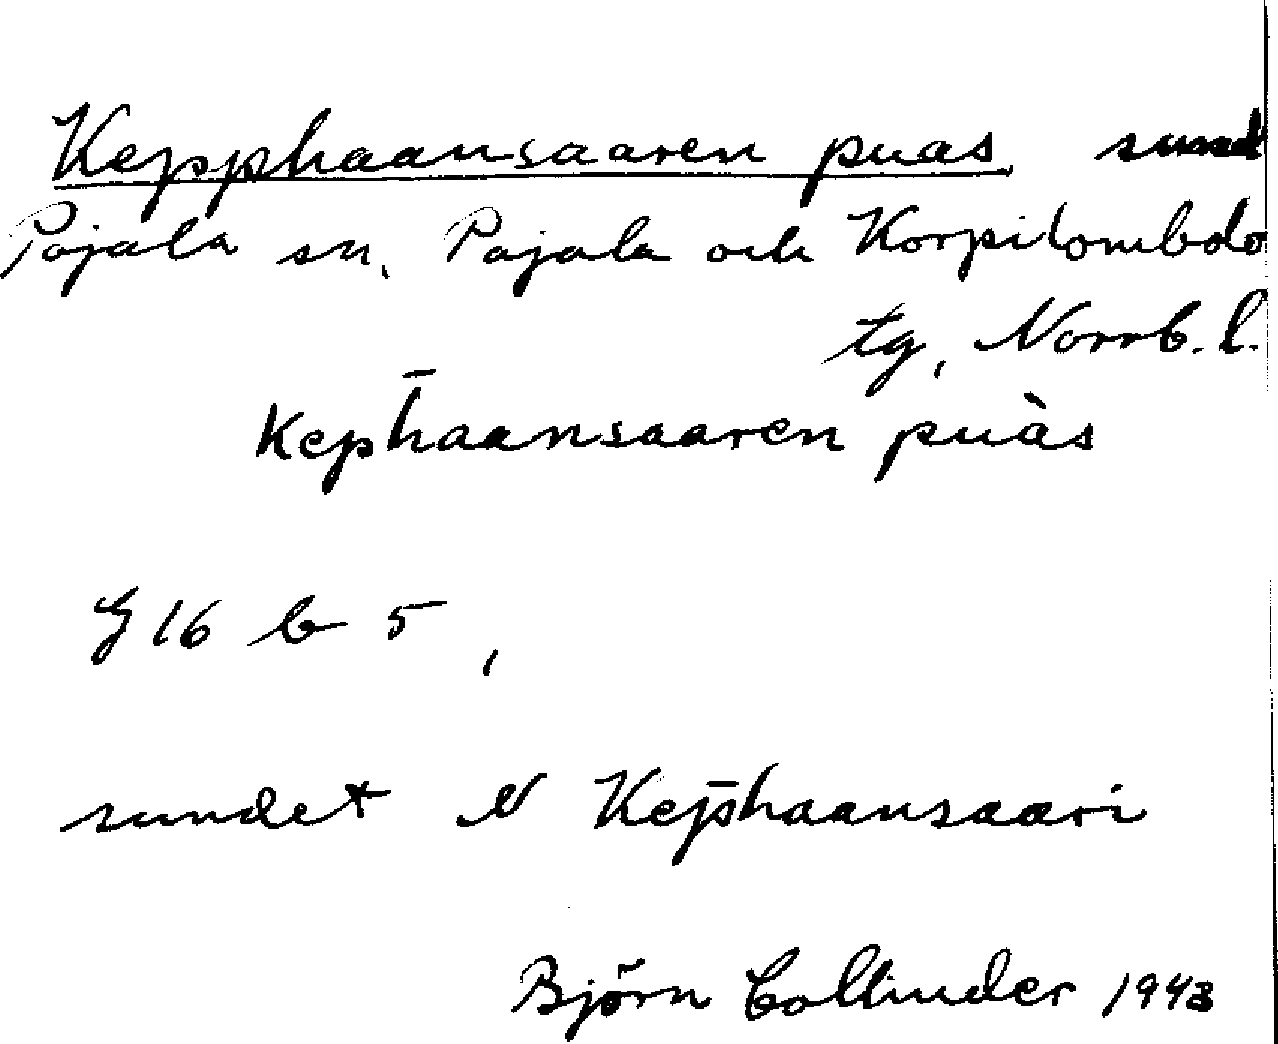 Kepphaansaaren puas sund
Pajala sn, Pajala och Korpilombolo
tg, Norrb. l.
kep̄haansaaren puàs
G 16 b 5,
sundet N Kep̄haansaari
Björn Collinder 1943